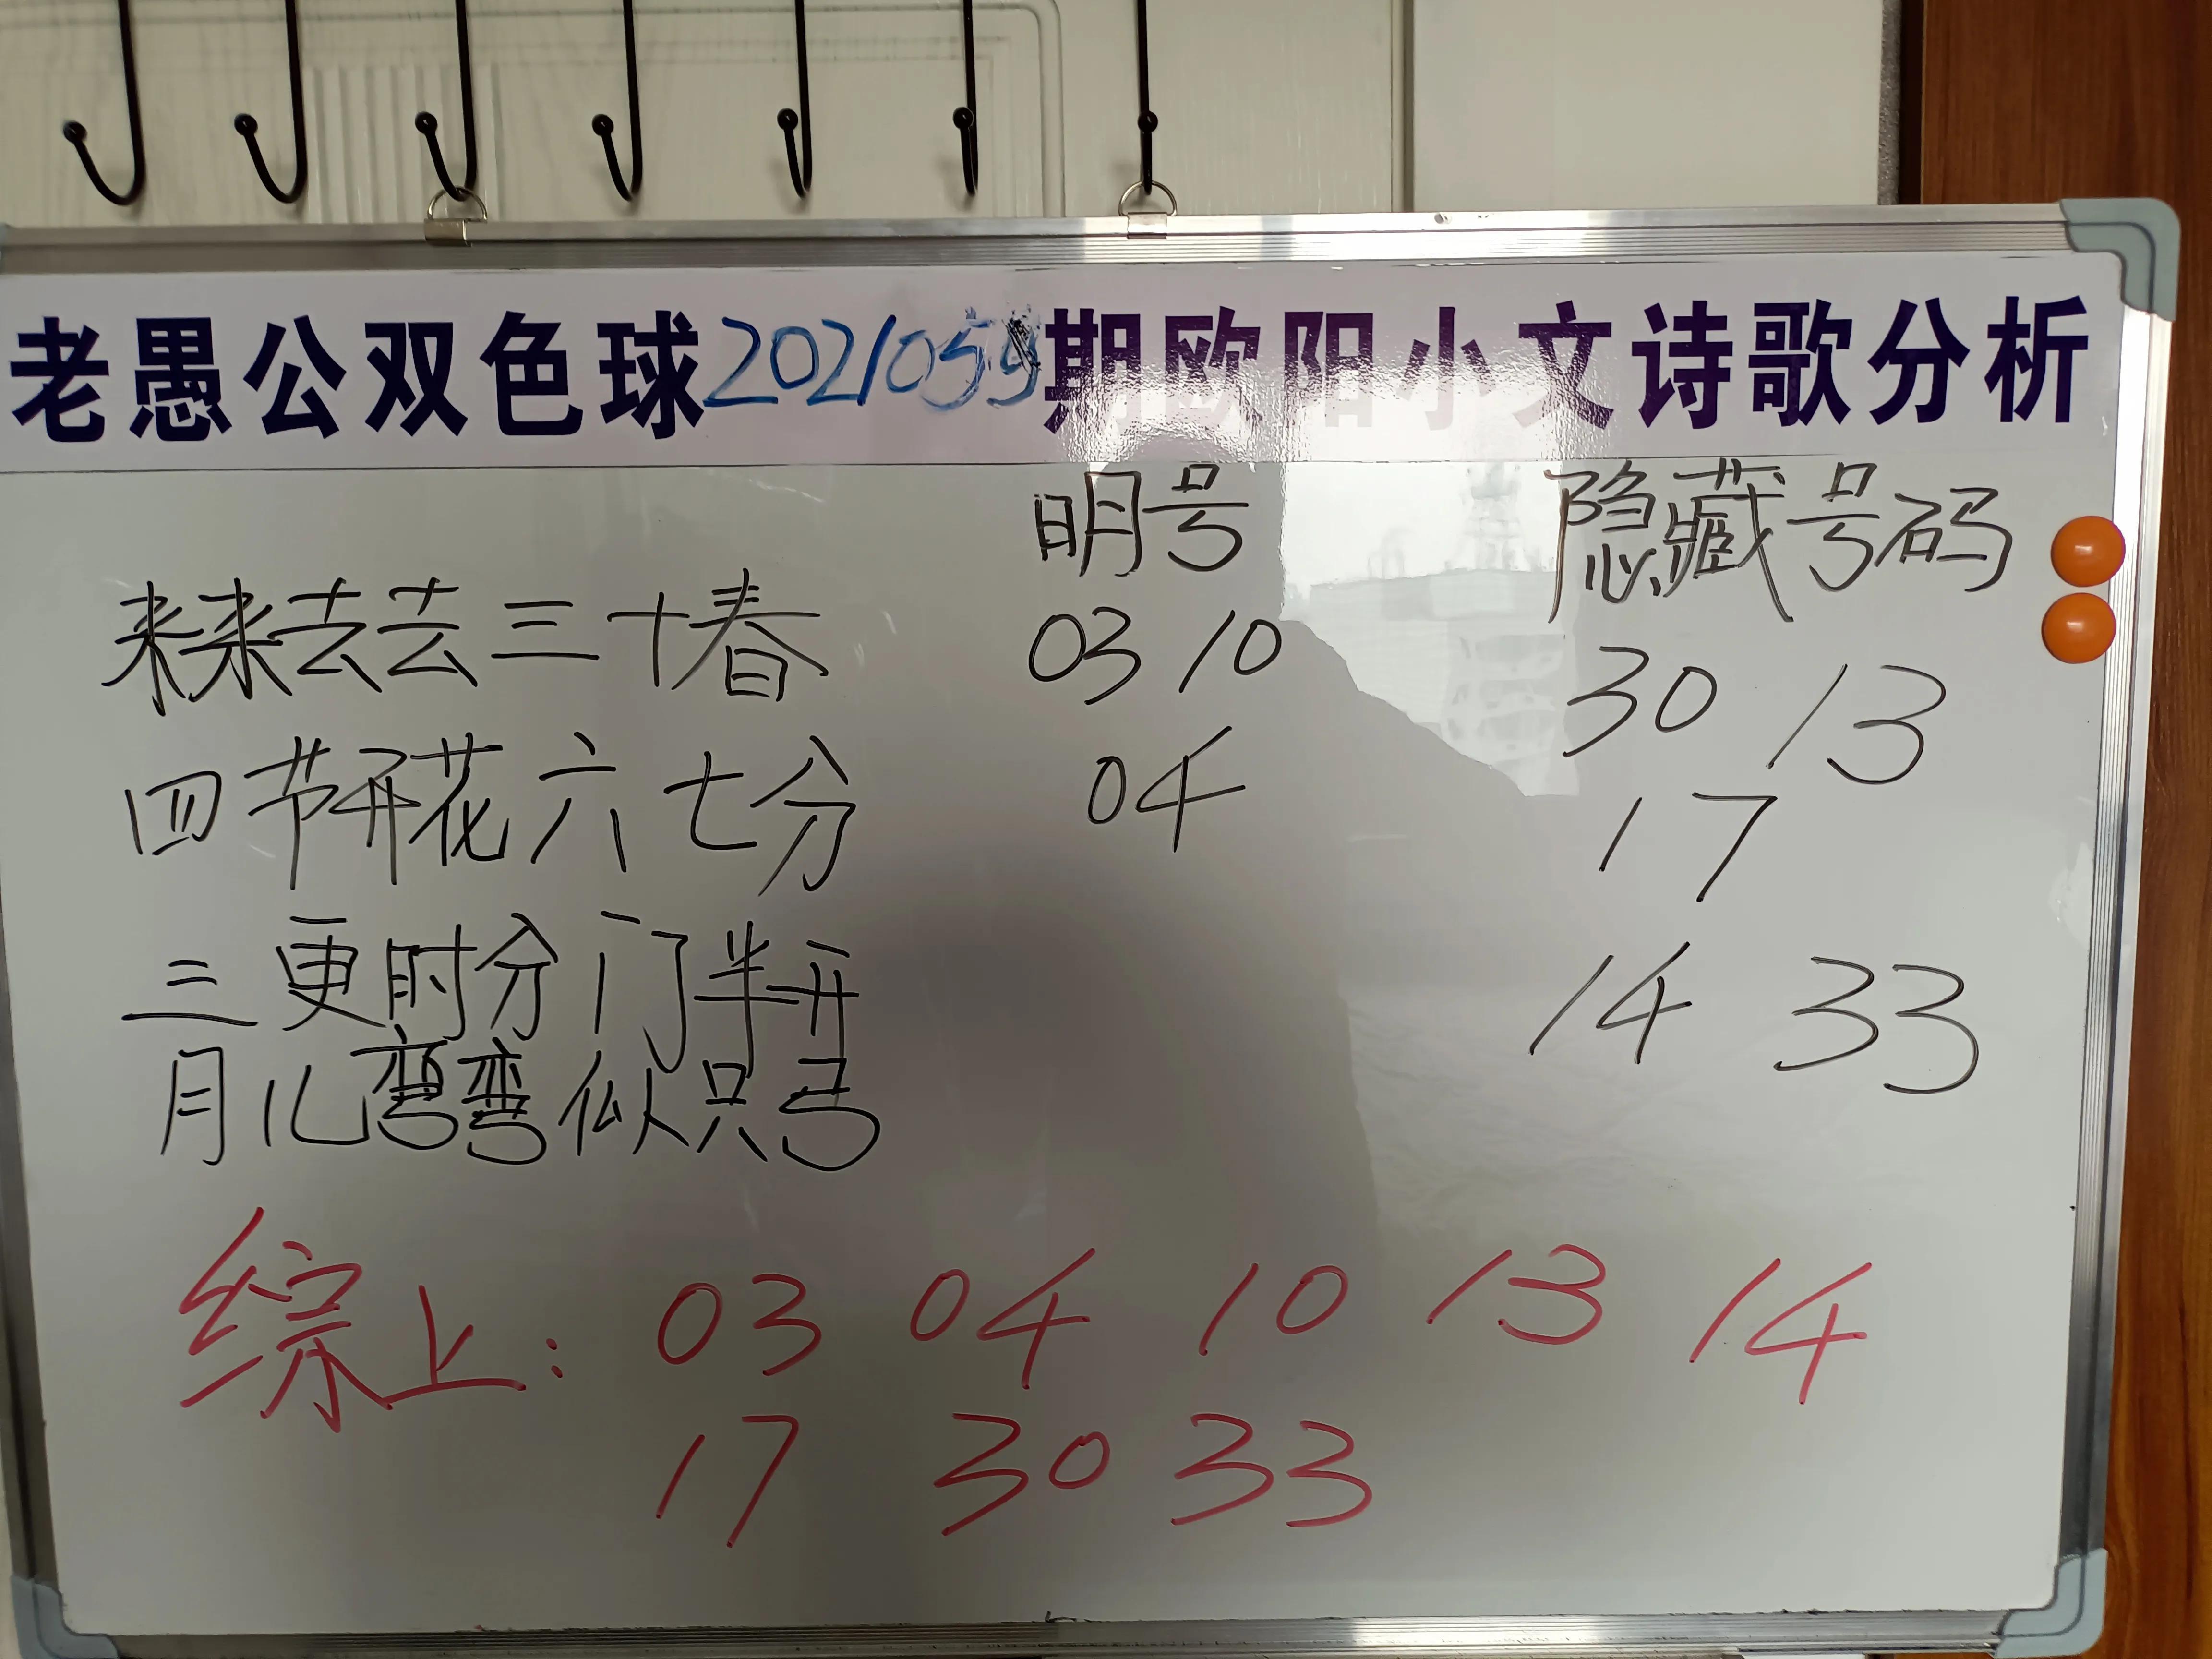 老愚公双色球2021059期欧阳小文诗歌分析
明号 隐藏号码
来来去去三十春 03 10 30 13
四节开花六七分 04 17
三更时分门半开 14 33
月儿弯弯似只弓
综上: 03 04 10 13 14
17 30 33